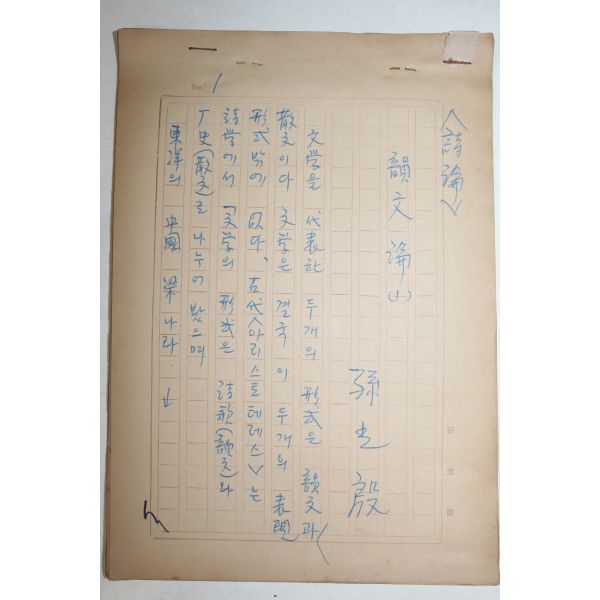 No. 1
<詩論>
韻文論(1)
孫土殷
文学을 代表한 두개의 形式은 韻文과
散文이다 文学은 결국 이 두개의 表現
形式밖에 없다、古代<아리스토테레스>는
詩学에서 「文学의 形式은 詩歌(韻文)와
厂史(散文)로 나누어 봤으며
東洋의 中國 梁나라